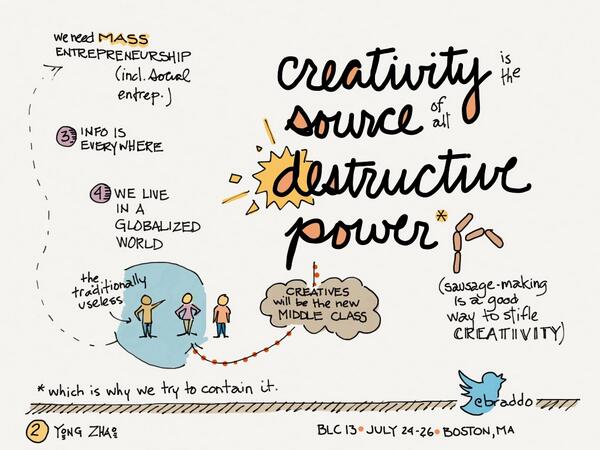 we need MASS
ENTREPRENEURSHIP
(incl. social
entrep.)
3 INFO IS
EVERYWHERE
4 WE LIVE
IN A
GLOBALIZED
WORLD
creativity is the
source of all
destructive
power*
the
traditionally
useless
CREATIVES
will be the new
MIDDLE CLASS
(sausage-making
is a good
way to stifle
CREATIVITY)
* which is why we try to contain it.
@braddo
2 YONG ZHAO
BLC 13 • JULY 24-26 • BOSTON, MA